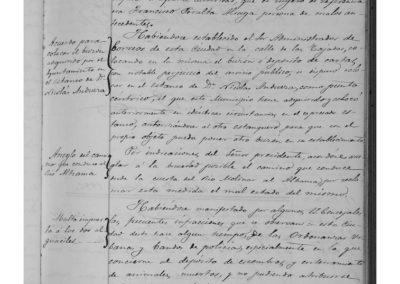 Francisco Peralta Monge persona de malos an-
tecedentes
Acuerdo para
colocar el buzon
adquirido por el
Ayuntamiento en
el estanco de Dn
Nicolás Andrera
Habiendose establecido el Sor Administrador de
Correos de esta Ciudad en la calle de las Tejadas, co-
locando en la misma el buzon ó deposito de cartas,
con notable perjuicio del servicio público, se dispuso colo-
car en el estanco de Dn Nicolás Andrera, como punto
centrico, el que este Municipio tiene adquirido y colocó
anteriormente en identicas circunstancias en el espresado es-
tanco, autorizandose al otro estanquero para que con el
propio objeto pueda poner otro buzon en su establecimiento
Arreglo del cami-
no que conduce al
rio Alhama
Por indicaciones del Señor presidente, acordose arre-
glar á la brevedad posible el camino que conduce
desde la cuesta del Rio Molinar al Alhama, por recla-
mar esta medida el mal estado del mismo.
Multa impues-
ta á los dos al-
guaciles
Habiendose manifestado por algunos SS Concejales
las frecuentes infracciones que se observan en esta Ciu-
dad desde hace algun tiempo, de las Ordenanzas Ur-
banas y bandos de policia, especialmente en lo que
concierne al deposito de escombros, y enterramiento
de animales muertos, y no pudiendo atribuirse